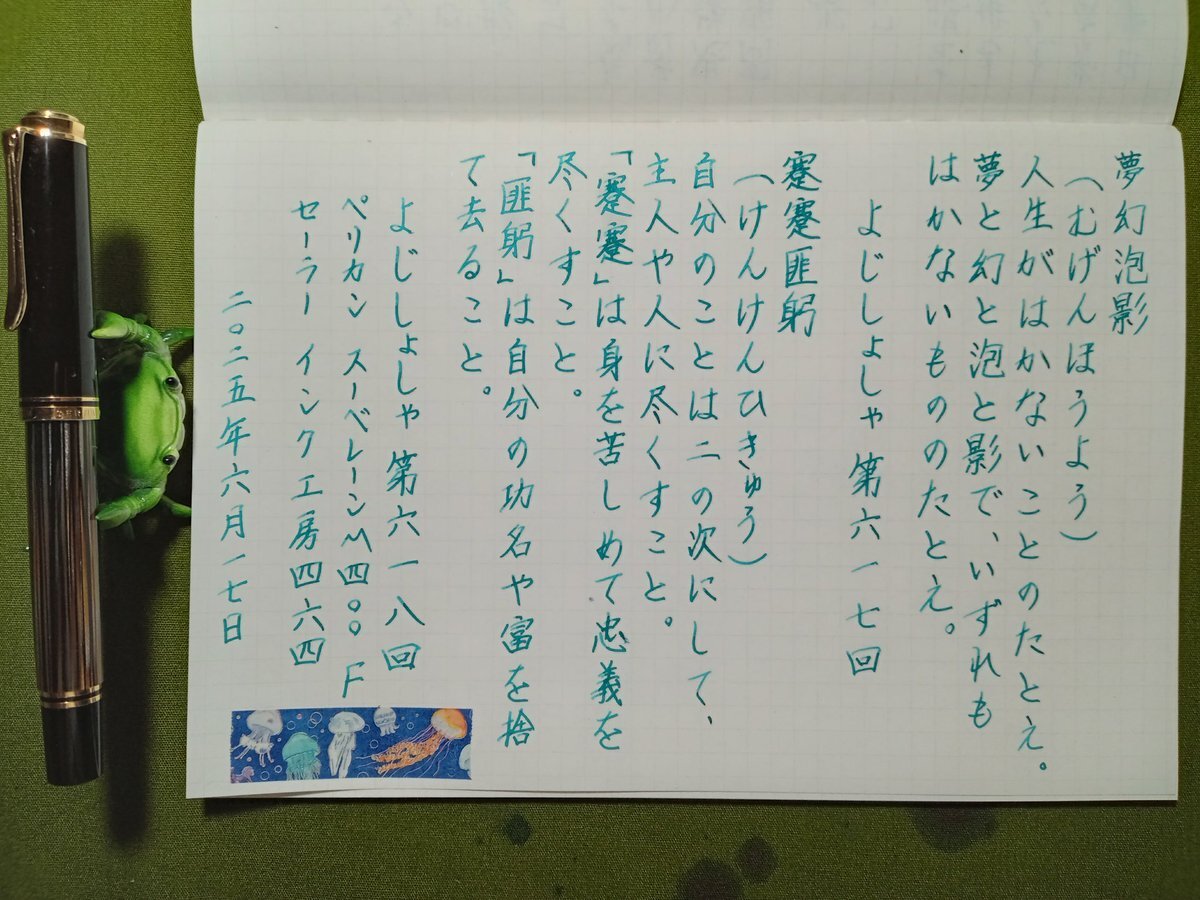 夢幻泡影
(むげんほうよう)
人生がはかないことのたとえ。
夢と幻と泡と影で、いずれも
はかないもののたとえ。
よじしょしゃ 第六一七回
蹇蹇匪躬
(けんけんひきゅう)
自分のことは二の次にして、
主人や人に尽くすこと。
「蹇蹇」は身を苦しめて忠義を
尽くすこと。
「匪躬」は自分の功名や富を捨
て去ること。
よじしょしゃ 第六一八回
ペリカン スーベレーンM四〇〇 F
セーラー インク工房四六四
二〇二五年六月一七日